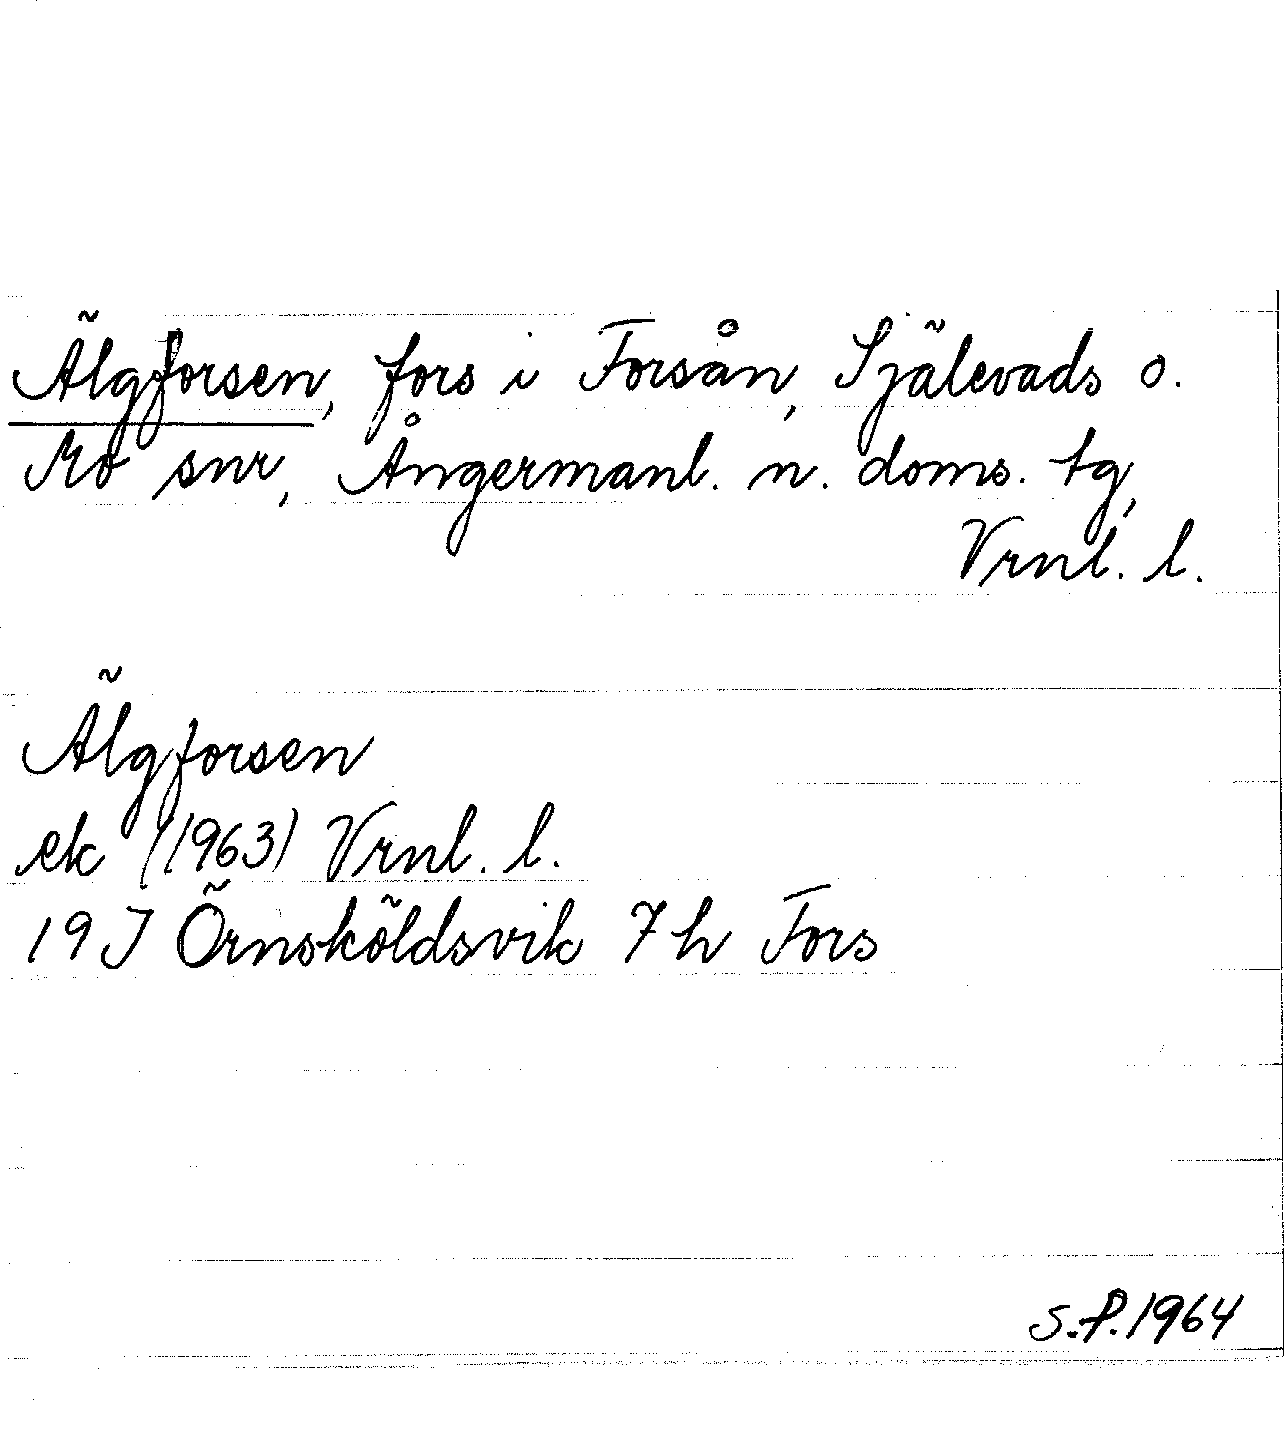 Älgforsen, fors i Forsån, Själevads o.
Mo snr, Ångermanl. n. doms. tg,
Vrnl. l.
Älgforsen
ek (1963) Vrnl. l.
19J Örnsköldsvik 7h Fors
S.P. 1964